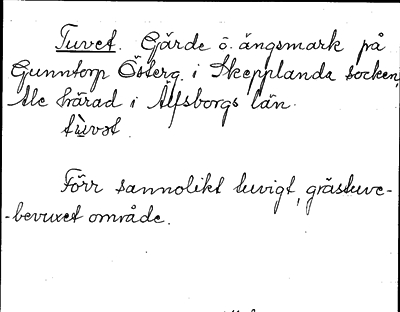 Tuvet. Gärde o. ängsmark på
Gunntorp Österg. i Skepplanda socken,
Ale härad i Älfsborgs län.
tùvət
Förr sannolikt tuvigt, grästuve-
-bevuxet område.